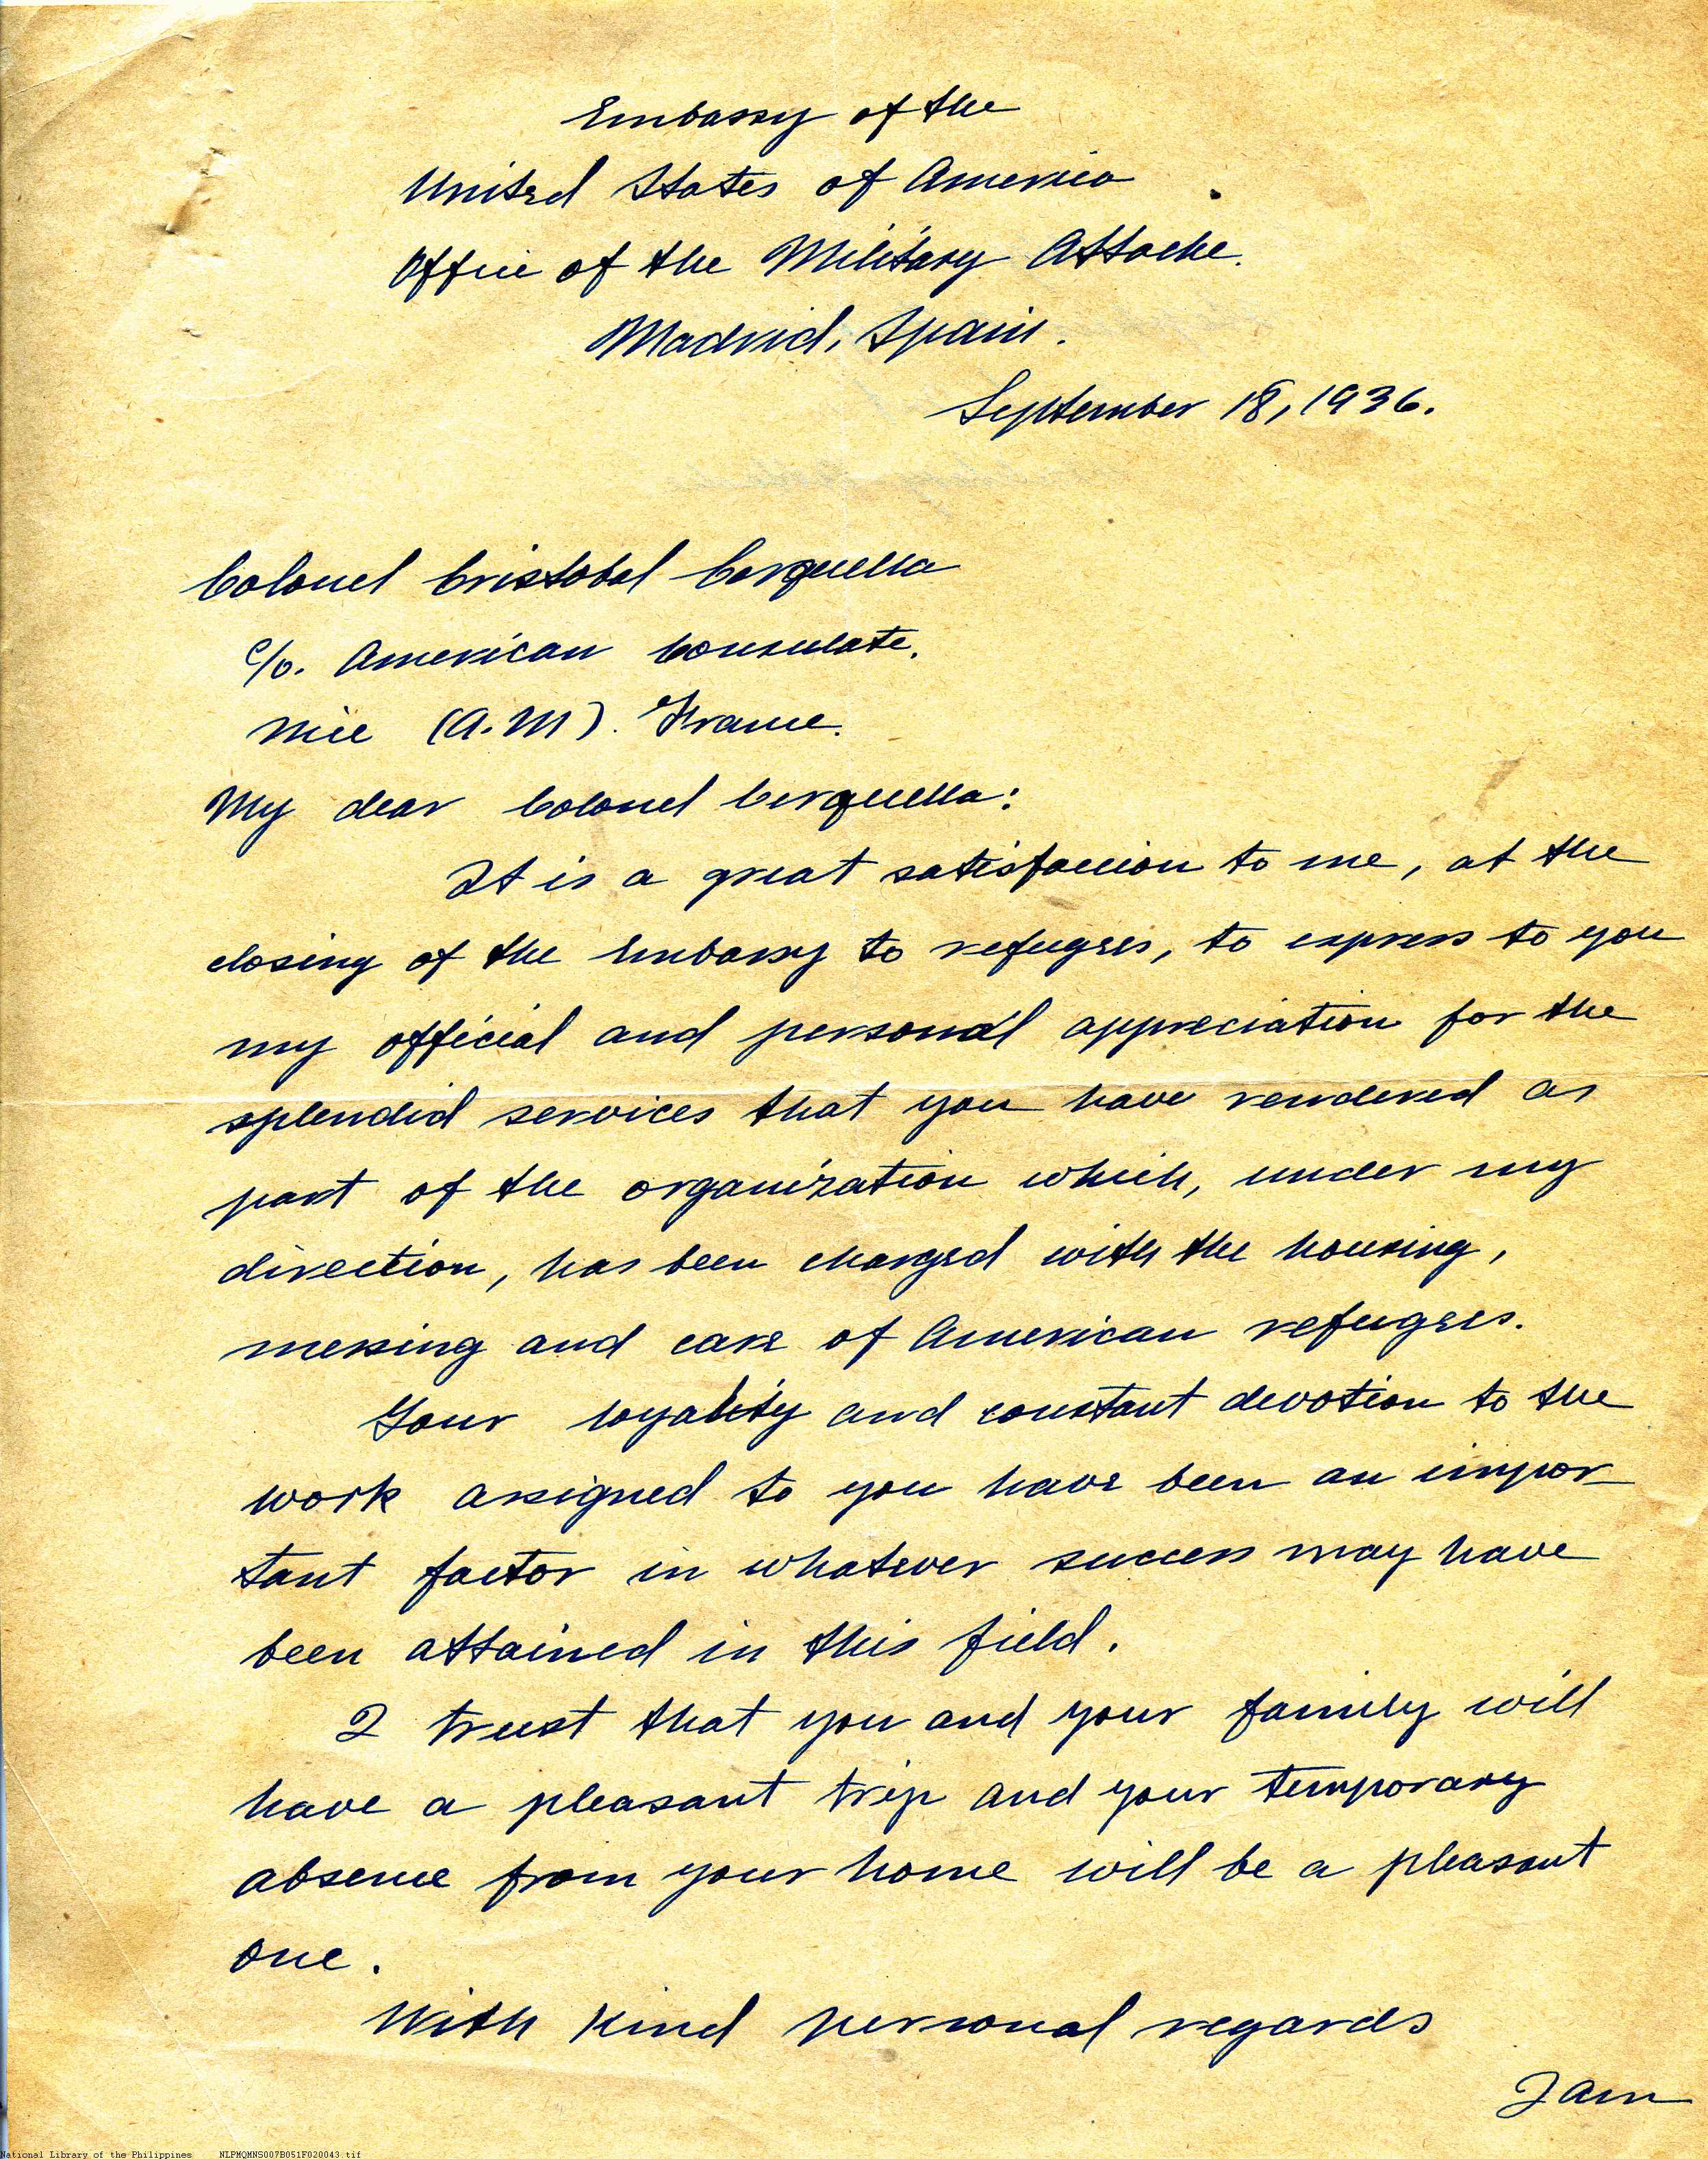 Embassy of the
United States of America
Office of the Military Attache.
Madrid, Spain.
September 18, 1936.
Colonel Cristobal Cerquella
c/o. American Consulate.
Nice (A.M). France.
My dear Colonel Cerquella:
It is a great satisfaccion to me, at the
closing of the Embassy to refugees, to express to you
my official and personal appreciation for the
splendid services that you have rendered as
part of the organization which, under my
direction, has been charged with the housing,
messing and care of American refugees.
Your loyality and constant devotion to the
work assigned to you have been an impor-
tant factor in whatever success may have
been attained in this field.
I trust that you and your family will
have a pleasant trip and your temporary
absence from your home will be a pleasant
one.
With kind personal regards
I am
National Library of the Philippines NLPMQMNS007B051F020043.tif